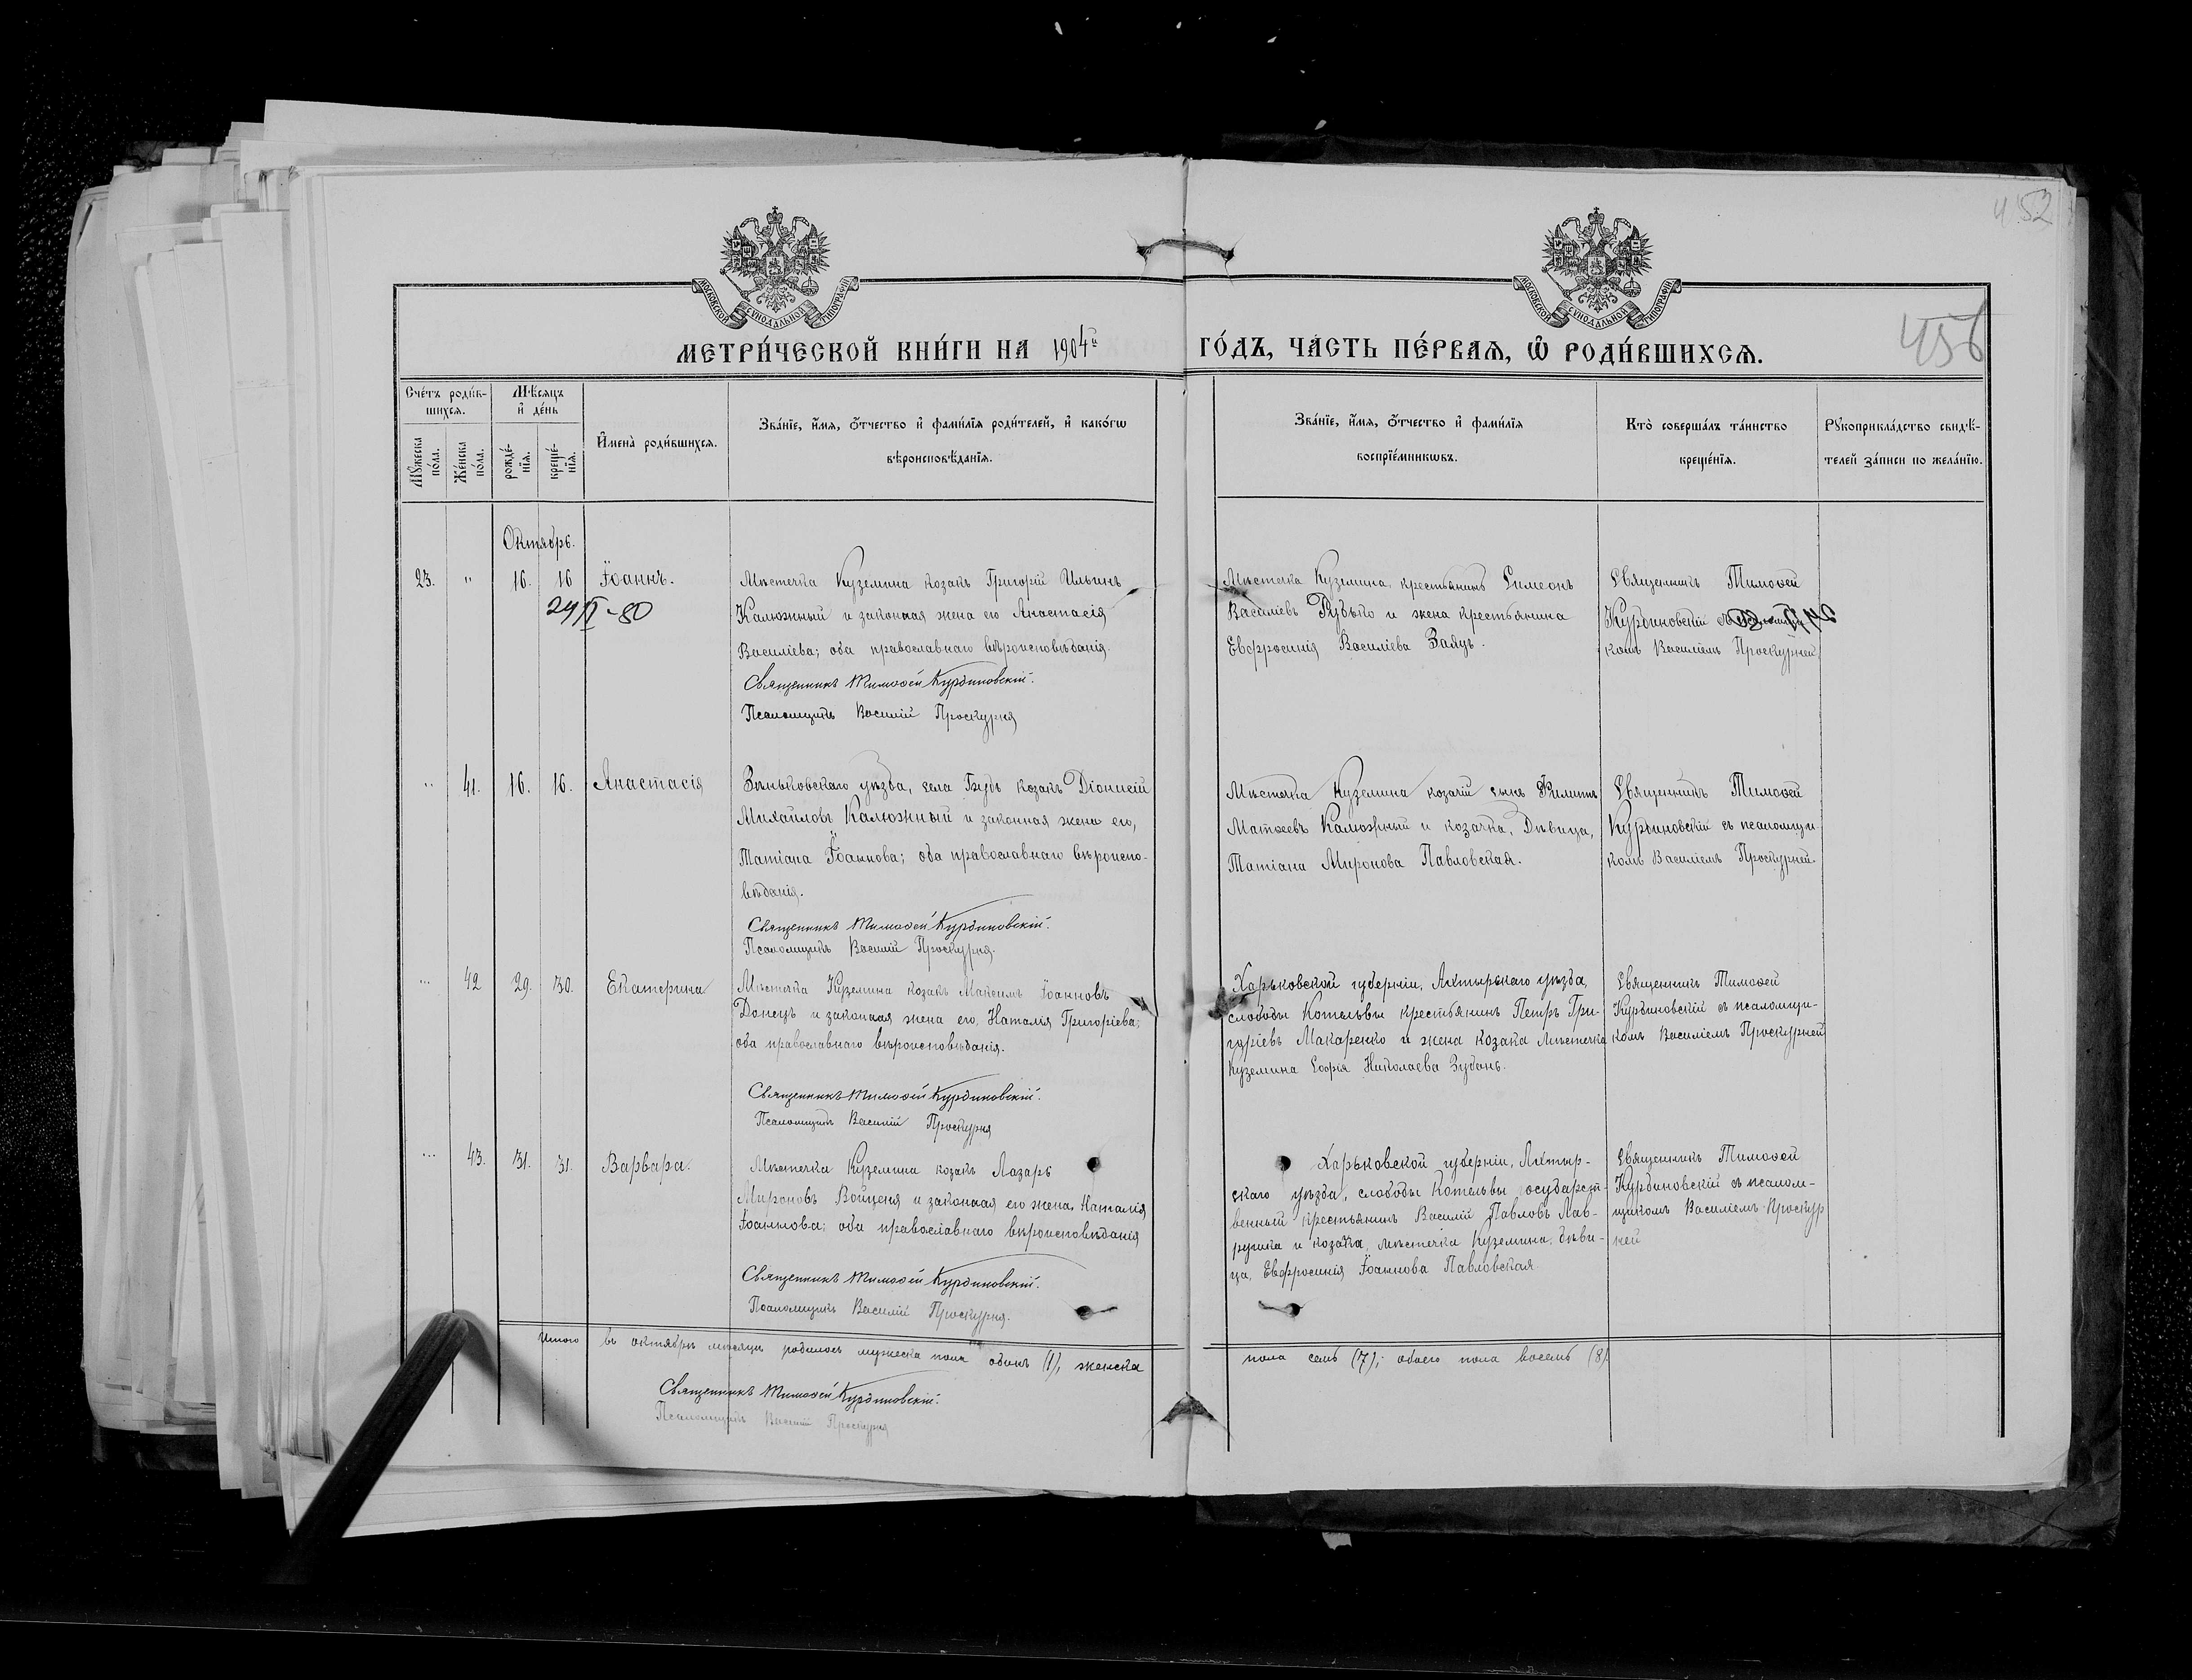 452
456
МОСКОВСКОЙ СѴНОДАЛЬНОЙ ТИПОГРАФІИ
МОСКОВСКОЙ СѴНОДАЛЬНОЙ ТИПОГРАФІИ
МЕТРИ́ЧЕСКОЙ КНИ́ГИ НА 1904й ГО́ДЪ, ЧА́СТЬ ПЕ́РВАѦ, Ѿ РОДИ́ВШИХСѦ.
Сче́тъ роди́в-
шихсѧ.
Мꙋ́жеска по́ла.
Же́нска по́ла.
Мѣ́сѧцъ
и҆ де́нь
рожде́-
нїѧ.
креще́-
нїѧ.
И҆мена̀ роди́вшихсѧ.
Зва́нїе, и҆́мѧ, ѻ҆́тчество и҆ фами́лїѧ роди́телей, и҆ како́гѡ
вѣроисповѣ́данїѧ.
Зва́нїе, и҆́мѧ, ѻ҆́тчество и҆ фами́лїѧ
воспрїе́мникѡвъ.
Кто̀ соверша́лъ та́инство
креще́нїѧ.
Рꙋкоприкла́дство свидѣ́-
телей за́писи по жела́нїю.
Октябрь.
23. " 16. 16 Іоаннъ.
24/II-80
Мѣстечка Куземина козакъ Григорій Ильинъ
Калюжный и законная жена его Анастасія
Василіева; оба православнаго вѣроисповѣданія.
Священникъ Тимоѳей Курдиновскій.
Псаломщикъ Василій Проскурня
Мѣстечка Куземина, крестьянинъ Симеонъ
Василіевъ Рудько и жена крестьянина
Евфросинія Василіева Заяцъ.
Священникъ Тимоѳей
Курдиновскій
комъ Василіемъ Проскурней
" 41. 16. 16. Анастасія
Зѣньковскаго уѣзда, села Будъ козакъ Діонисій
Михайловъ Калюжный и законная жена его,
Татіана Іоаннова; оба православнаго вѣроиспо-
вѣданія.
Священникъ Тимоѳей Курдиновскій.
Псаломщикъ Василій Проскурня.
Мѣстечка Куземина козачій сынъ Филиппъ
Матѳеевъ Калюжный и козачка, дѣвица,
Татіана Миронова Павловская.
Священникъ Тимоѳей
Курдиновскій съ псаломщи-
комъ Василіемъ Проскурней.
" 42 29. 30. Екатерина
Мѣстечка Куземина козакъ Максимъ Іоанновъ
Донецъ и законная жена его, Наталія Григоріева;
оба православнаго вѣроисповѣданія.
Священникъ Тимоѳей Курдиновскій.
Псаломщикъ Василій Проскурня
Харьковской губерніи, Ахтырскаго уѣзда,
слободы Котельвы крестьянинъ Петръ Гри-
горіевъ Макаренко и жена козака мѣстечка
Куземина Софія Николаева Зубань.
Священникъ Тимоѳей
Курдиновскій съ псаломщи-
комъ Василіемъ Проскурней
" 43. 31. 31. Варвара.
Мѣстечка Куземина козакъ Лазарь
Мироновъ Войценя и законная его жена, Наталія
Іоаннова; оба православнаго вѣроисповѣданія
Священникъ Тимоѳей Курдиновскій.
Псаломщикъ Василій Проскурня.
Харьковской губерніи, Ахтыр-
скаго уѣзда, слободы Котельвы государст-
венный крестьянинъ Василій Павловъ Лав-
рушка и козачка, мѣстечка Куземина, дѣви-
ца, Евфросинія Іоаннова Павловская
Священникъ Тимоѳей
Курдиновскій съ псалом-
щикомъ Василіемъ Проскур
ней
Итого въ октябрѣ мѣсяцѣ родилось мужеска пола одинъ (1), женска пола семь (7); обоего пола восемь (8).
Священникъ Тимоѳей Курдиновскій.
Псаломщикъ Василій Проскурня